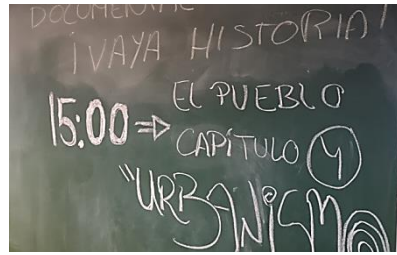 DOCUMENTAL
¡VAYA HISTORIA!
15:00 ⇒ EL PUEBLO
CAPÍTULO 4
"URBANISMO